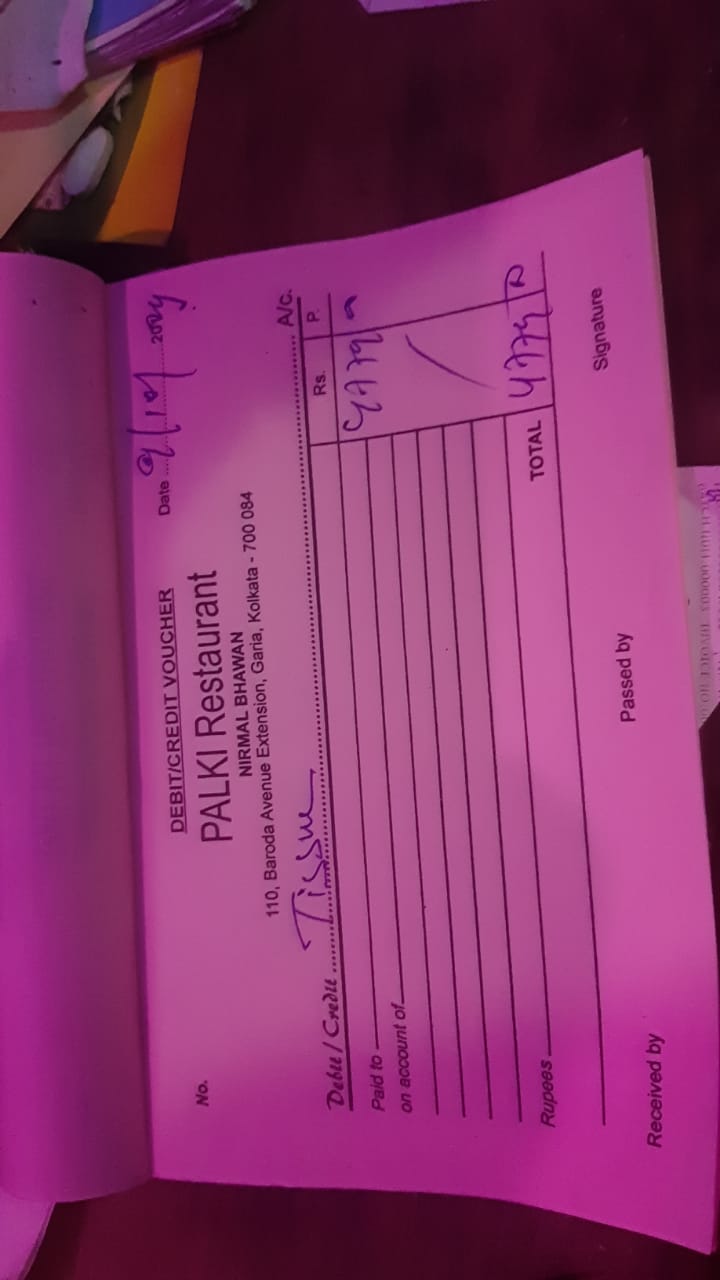 DEBIT/CREDIT VOUCHER
No.
Date 2024
PALKI Restaurant
NIRMAL BHAWAN
110, Baroda Avenue Extension, Garia, Kolkata - 700 084
Debit / Credit Tissue A/c.
Rs. P.
Paid to
on account of
TOTAL
Rupees
Received by Passed by Signature